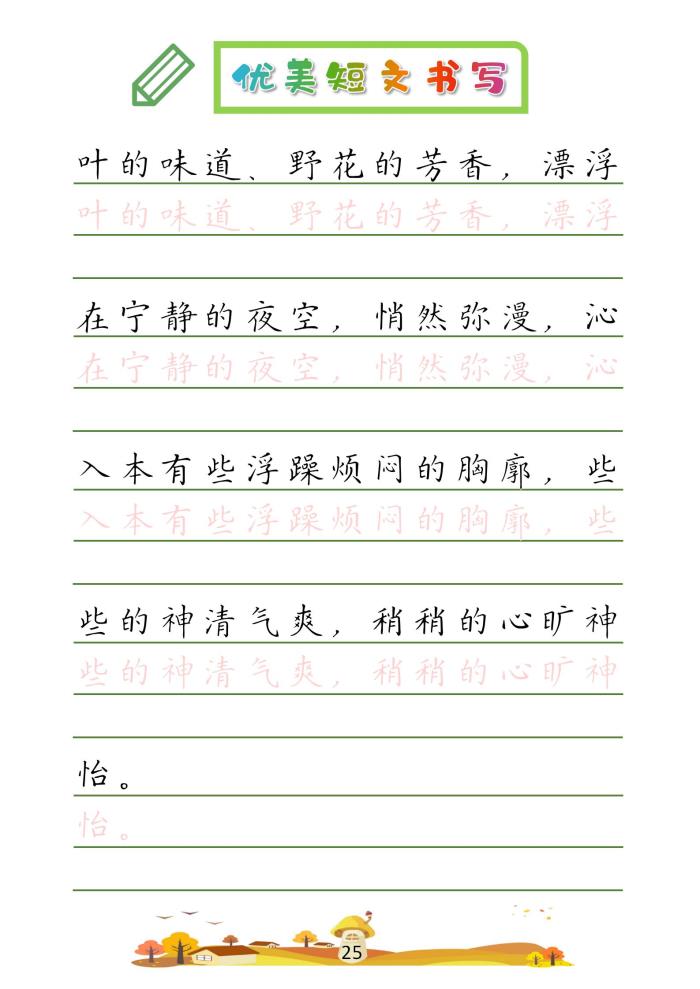 优美短文书写
叶的味道、野花的芳香，漂浮
叶的味道、野花的芳香，漂浮
在宁静的夜空，悄然弥漫，沁
在宁静的夜空，悄然弥漫，沁
入本有些浮躁烦闷的胸廓，些
入本有些浮躁烦闷的胸廓，些
些的神清气爽，稍稍的心旷神
些的神清气爽，稍稍的心旷神
怡。
怡。
25